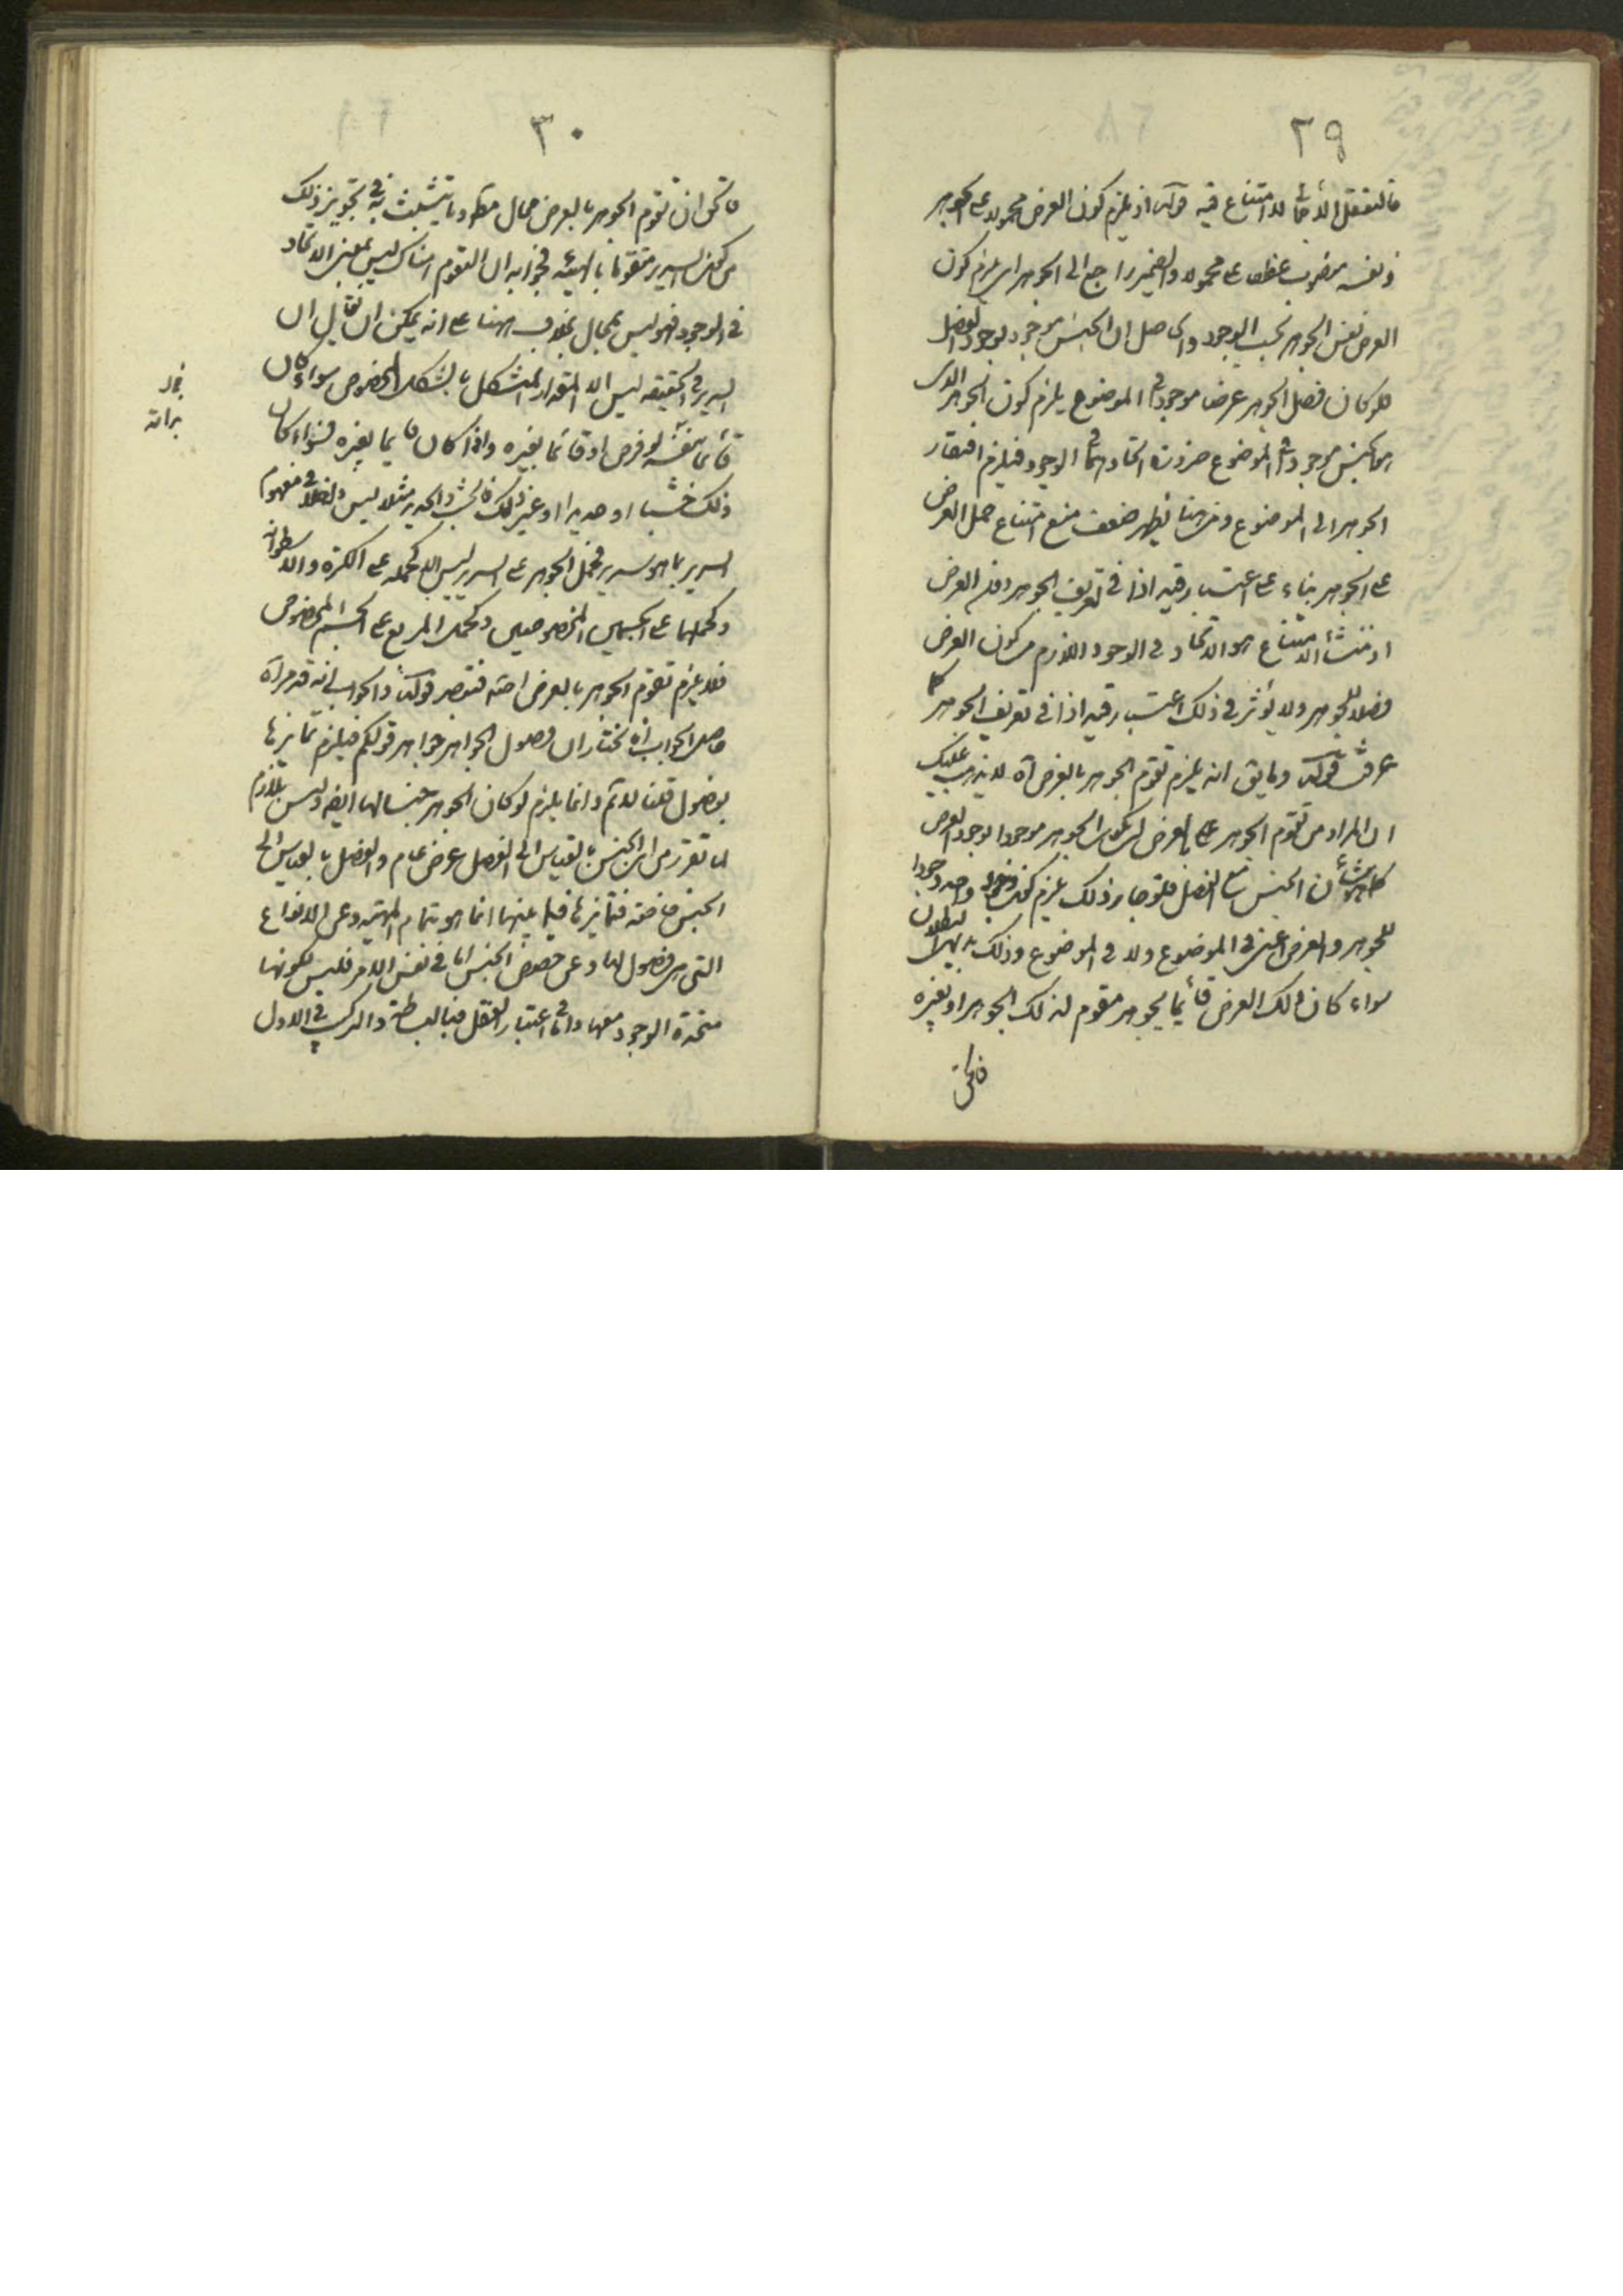 ٢٩
فالتعقل الاتحاد لا امتناع فيه قوله اذ يلزم كون العرض محمولا على الجوهر
ونفسه منصوب عطف على محمولا والضمير راجع الى الجوهر اى يلزم كون
العرض نفس الجوهر بحسب الوجود والحاصل ان الجنس موجود بوجود الفصل
فلو كان فصل الجوهر عرضا موجودا فى الموضوع يلزم كون الجوهر الذى
هو الجنس موجودا فى الموضوع ضرورة اتحادهما فى الوجود فيلزم افتقار
الجوهر الى الموضوع ومن هنا يظهر ضعف منع امتناع حمل العرض
على الجوهر بناء على اعتبار قيد اذا فى تعريف الجوهر دون العرض
اذ منشأ الامتناع هو الاتحاد فى الوجود اللازم من كون العرض
فصلا للجوهر ولا يؤثر فى ذلك اعتبار قيد اذا فى تعريف الجوهر كما
عرفت قوله وما يق انه يلزم تقوم الجوهر بالعرض آه لا يذهب عليك
ان المراد من تقوم الجوهر بالعرض ان يكون الجوهر موجودا بوجود العرض
كما هو شأن الجنس مع الفصل فلو جاز ذلك يلزم كون وجود واحد وجودا
للجوهر والعرض اعنى فى الموضوع ولا فى الموضوع وذلك بديهى البطلان
سواء كان ذلك العرض قائما بجوهر مقوم لذلك الجوهر او بغيره
فالحق
٣٠
فالحق ان تقوم الجوهر بالعرض محال مطلقا وما يتشبث به فى تجويز ذلك
من كون السرير متقوما بالهيئة فجوابه ان التقوم هناك ليس بمعنى الاتحاد
فى الوجود فهو ليس بمحال بخلاف ههنا على انه يمكن ان يقال ان
السرير فى الحقيقه ليس الا المقدار المتشكل بالشكل المخصوص سواء كان
قائما بنفسه لو فرض او قائما بغيره واذا كان قائما بغيره فسواء كان
ذلك خشبا او حديدا او غير ذلك فالخشب والحديد مثلا ليس داخلا فى مفهوم
السرير بما هو سرير فحمل الجوهر على السرير ليس الا كحمله على الكرة والاسطوانة
وكحملهما على الجسمين المخصوصين وكحمل المربع على الجسم المخصوص
فلا يلزم تقوم الجوهر بالعرض اصلا فتبصر قوله والجواب انه قد مر آه
حاصل الجواب انا نختار ان فصول الجواهر جواهر قولكم فيلزم تمايزها
بفصول قلنا لا نم وانما يلزم لو كان الجوهر جنسا لها ايضا وليس بلازم
لما تقرر من ان الجنس بالقياس الى الفصل عرض عام والفصل بالقياس الى
الجنس خاصة فتمايزها فيما بينها انما هو بتمام المهية وعن الانواع
التى هى فصول لها وعن خصوص الجنس اما فى نفس الامر فليس لكونها
متحدة الوجود معها واما فى اعتبار العقل فبالبساطة والتركيب فى الاول